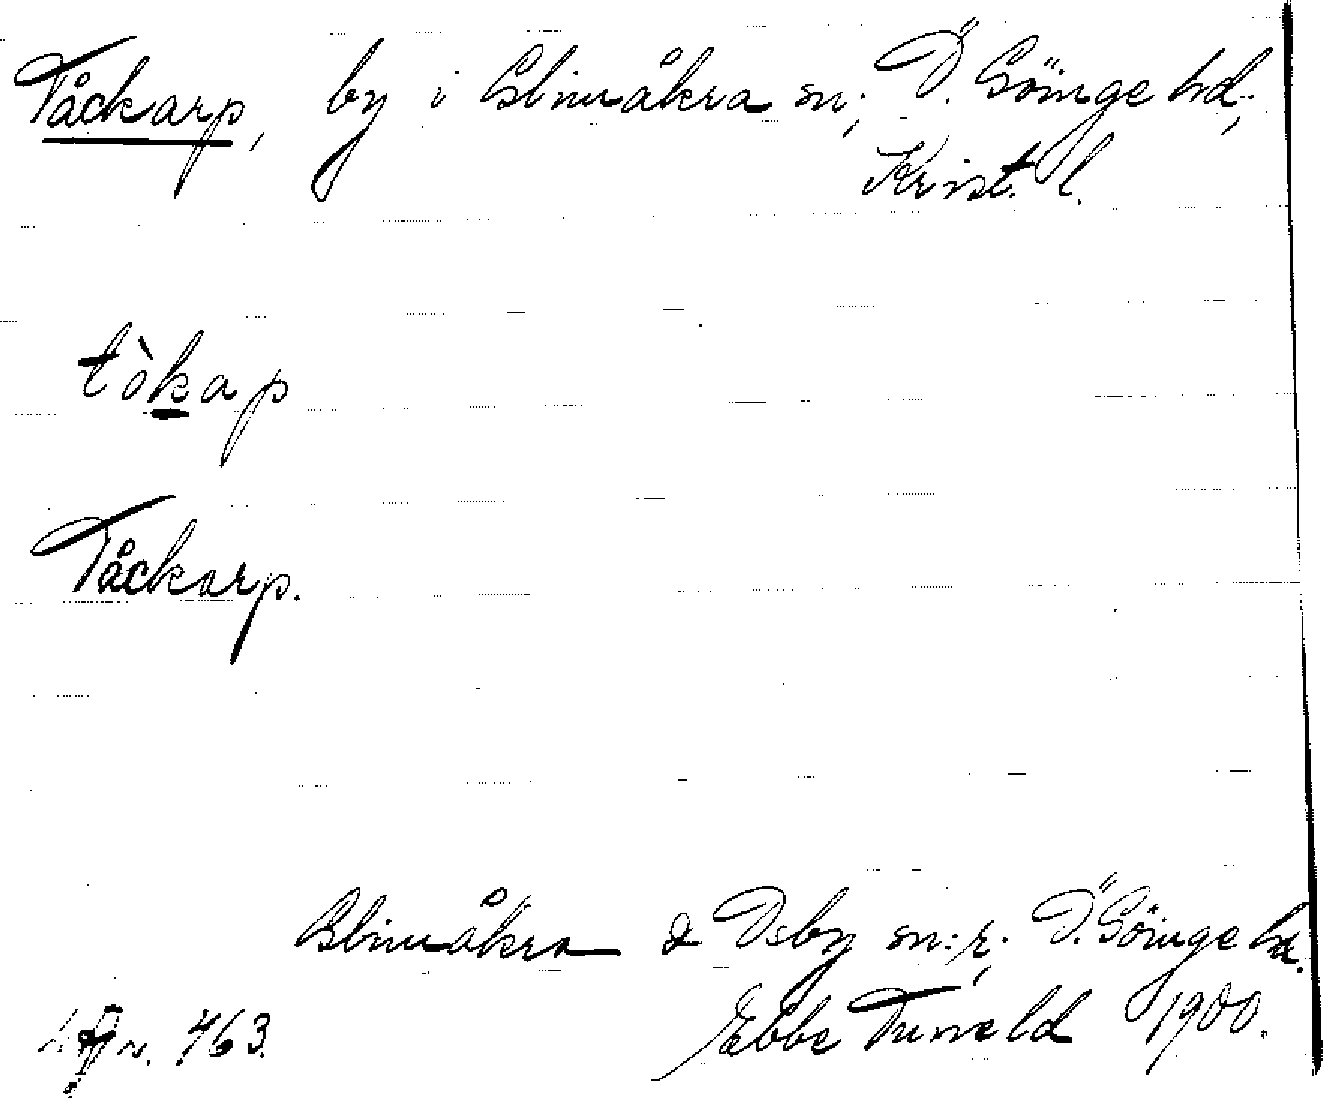 Tåckarp, by i Glimåkra sn; Ö. Göinge hd;
Krist. l.
tòkap
Tåckarp.
Glimåkra & Osby sn:r; Ö. Göinge hd.
Ebbe Tuneld 1900.
nr. 763.